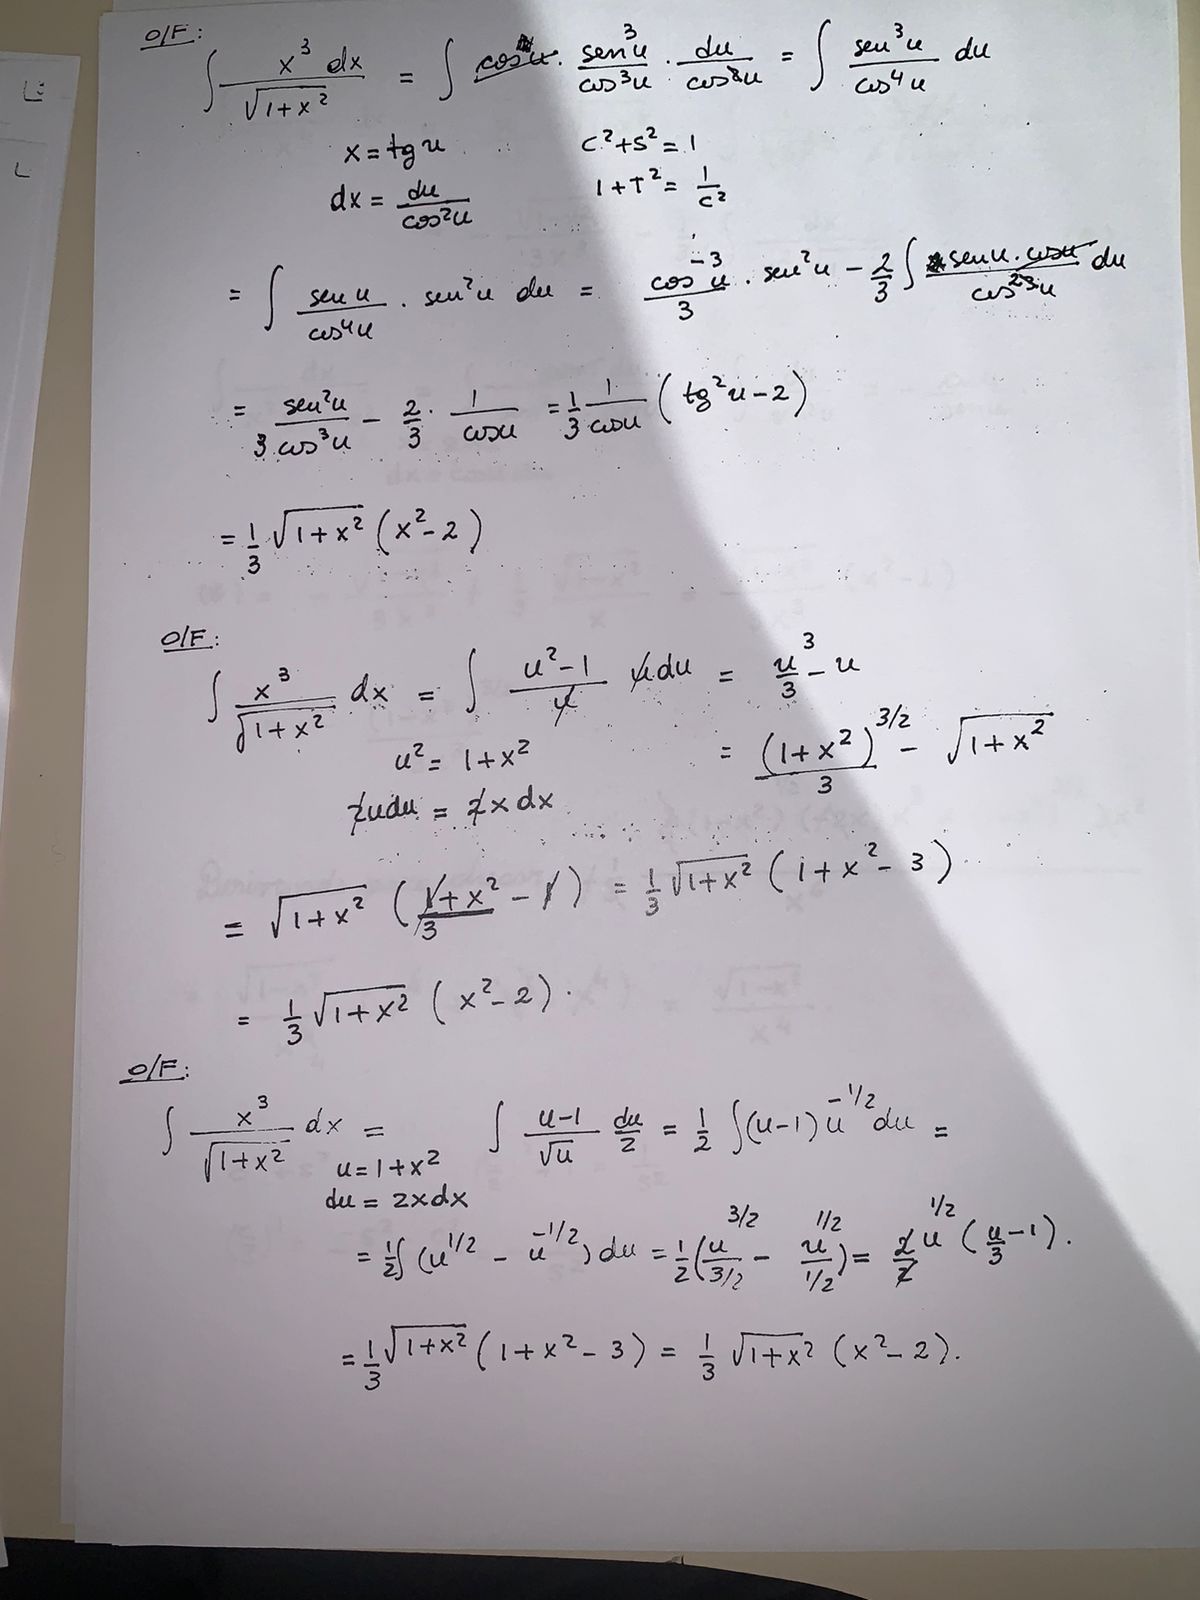 O/F:
∫ x³ dx / √(1+x²) = ∫ cos u · sen³u / cos³u · du / cos²u = ∫ sen³u / cos⁴u du
x = tg u    c²+s² = 1
dx = du / cos²u    1+T² = 1/c²
= ∫ sen u / cos⁴u · sen²u du = cos⁻³u / 3 · sen²u − 2/3 ∫ sen u · cos u / cos³u du
= sen²u / 3 cos³u − 2/3 · 1/cos u = 1/3 1/cos u (tg²u − 2)
= 1/3 √(1+x²) (x² − 2)
O/F:
∫ x³ / √(1+x²) dx = ∫ (u²−1)/u u du = u³/3 − u
u² = 1+x²    = (1+x²)^(3/2) / 3 − √(1+x²)
2udu = 2x dx
= √(1+x²) ((1+x²)/3 − 1) = 1/3 √(1+x²) (1+x²−3)
= 1/3 √(1+x²) (x²−2).
O/F:
∫ x³ / √(1+x²) dx = ∫ (u−1)/√u du/2 = 1/2 ∫(u−1) u^(−1/2) du =
u = 1+x²
du = 2xdx
= 1/2 ∫ (u^(1/2) − u^(−1/2)) du = 1/2 (u^(3/2) / 3/2 − u^(1/2) / 1/2) = 2/2 u^(1/2) (u/3 − 1).
= 1/3 √(1+x²) (1+x²−3) = 1/3 √(1+x²) (x²−2).